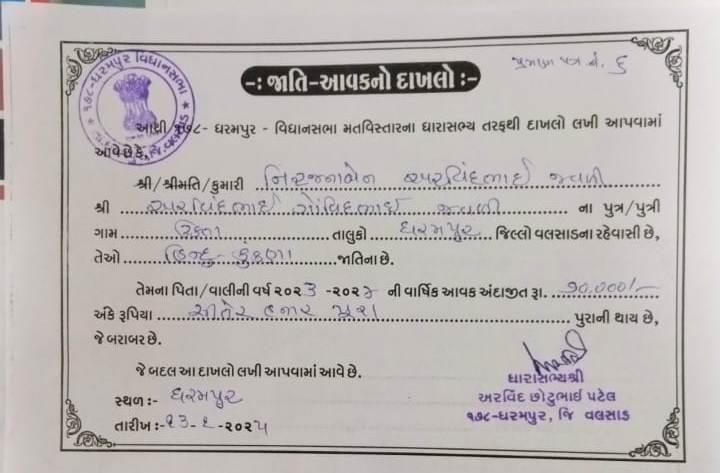 ૧૭૮-ધરમપુર વિધાનસભા
જિ. વલસાડ
પ્રમાણ પત્ર નં. ૬
-: જાતિ-આવકનો દાખલો :-
આથી ૧૭૮- ધરમપુર - વિધાનસભા મતવિસ્તારના ધારાસભ્ય તરફથી દાખલો લખી આપવામાં
આવે છે કે,
શ્રી/શ્રીમતિ/કુમારી નિરંજનાબેન અરવિંદભાઈ
શ્રી અરવિંદભાઈ ગોવિંદભાઈ ના પુત્ર/પુત્રી
ગામ તાલુકો ધરમપુર જિલ્લો વલસાડના રહેવાસી છે,
તેઓ હિન્દુ-કુંકણા જાતિના છે.
તેમના પિતા/વાલીની વર્ષ ૨૦૨૩ -૨૦૨૪ ની વાર્ષિક આવક અંદાજીત રૂા. ૭૦,૦૦૦/-
અંકે રૂપિયા સીતેર હજાર પૂરા પુરાની થાય છે,
જે બરાબર છે.
જે બદલ આ દાખલો લખી આપવામાં આવે છે.
સ્થળ :- ધરમપુર
તારીખ :- ૧૩-૨-૨૦૨૫
ધારાસભ્યશ્રી
અરવિંદ છોટુભાઈ પટેલ
૧૭૮-ધરમપુર, જિ વલસાડ